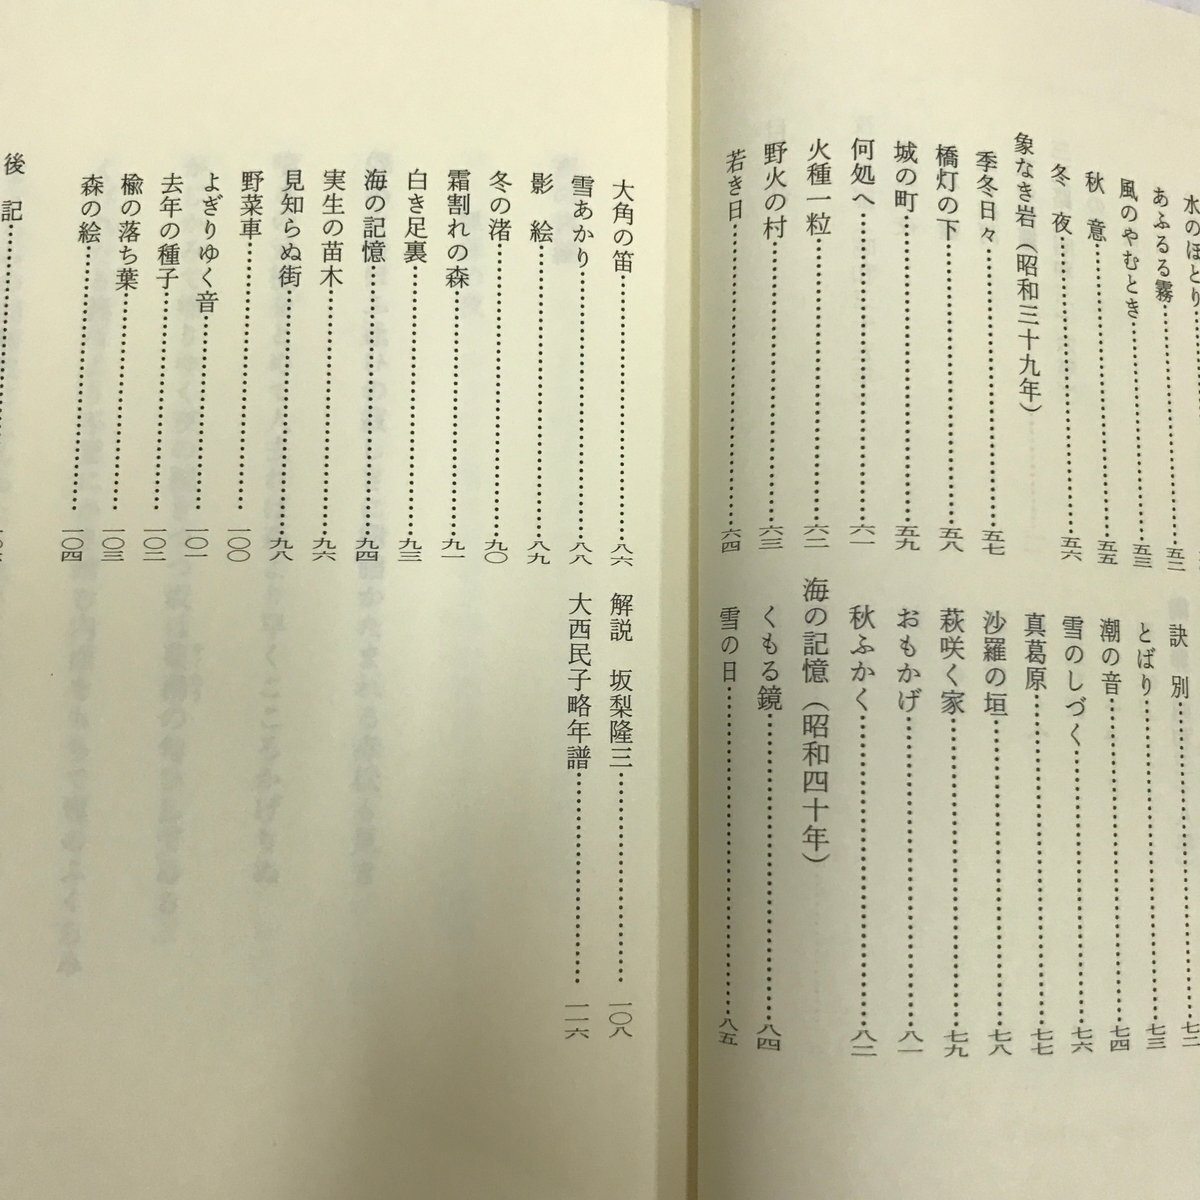 水のほとり
あふるる霧……五二
風のやむとき……五三
秋　意……五五
冬　夜……五六
象なき岩（昭和三十九年）
季冬日々……五七
橋灯の下……五八
城の町……五九
何処へ……六一
火種一粒……六二
野火の村……六三
若き日……六四
訣　別……七二
とばり……七三
潮の音……七四
雪のしづく……七六
真葛原……七七
沙羅の垣……七八
萩咲く家……七九
おもかげ……八一
秋ふかく……八二
海の記憶（昭和四十年）
くもる鏡……八四
雪の日……八五
大角の笛……八六
雪あかり……八八
影　絵……八九
冬の渚……九〇
霜割れの森……九一
白き足裏……九三
海の記憶……九四
実生の苗木……九六
見知らぬ街……九八
野菜車……一〇〇
よぎりゆく音……一〇一
去年の種子……一〇二
楡の落ち葉……一〇三
森の絵……一〇四
後　記……
解説　坂梨隆三……一〇八
大西民子略年譜……一一六